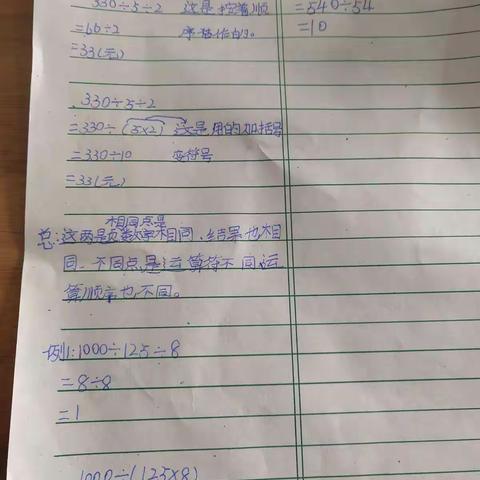 330÷5÷2 这是按着顺
=66÷2 序
=33(元)
330÷5÷2
=330÷(5×2) 这是用的加括号
=330÷10 变符号
=33(元)
相同点是
总:这两题数相同,结果也相
同.不同点是运算符不同,运
算顺序也不同。
例1:1000÷125÷8
=8÷8
=1
1000÷(125×8)
=540÷54
=10